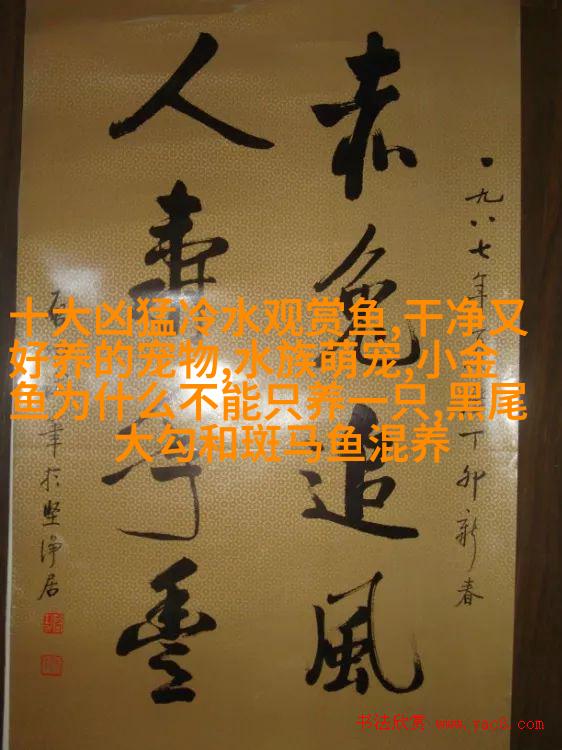 一九八七年
丁卯新春
赤兔追風
人壽年豐
筆於堅淨居
十大凶猛冷水观赏鱼,干净又
好养的宠物,水族萌宠,小金
鱼为什么不能只养一只,黑尾
大勾和斑马鱼混养
书法欣赏 www.yac8.com